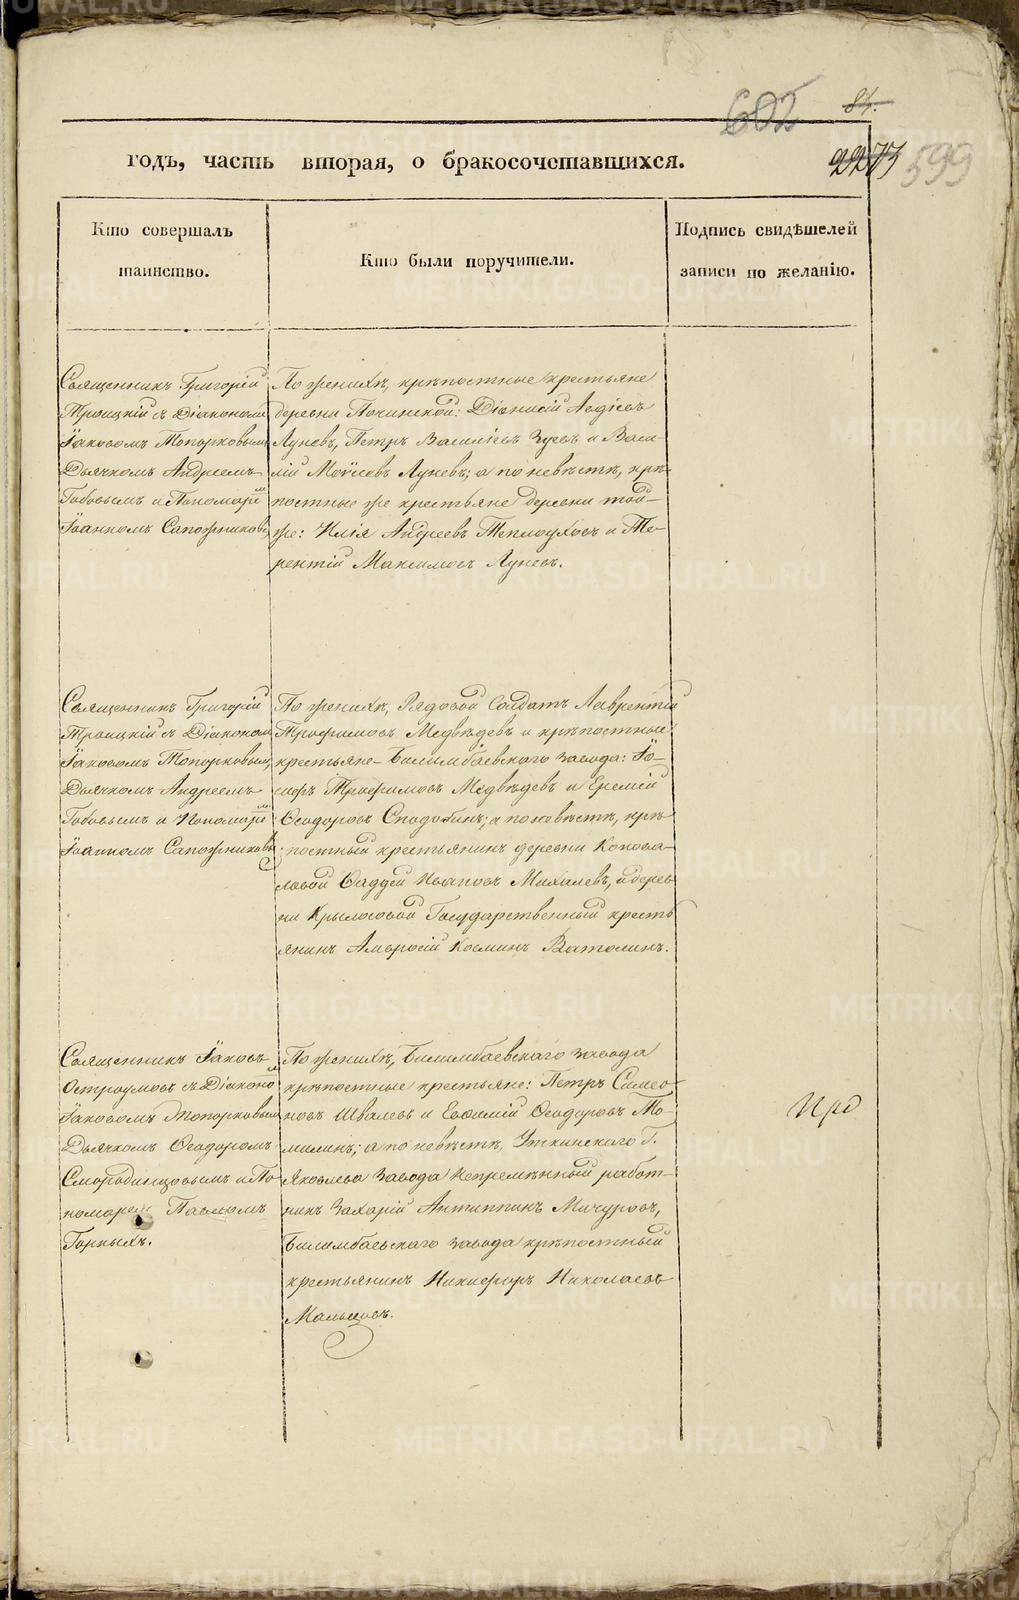 602
84.
2273
599
годъ, часть вторая, о бракосочетавшихся.
Кто совершалъ
таинство.
Кто были поручители.
Подпись свидѣтелей
записи по желанію.
Священникъ Григорій
Троицкій съ Діакономъ
Іаковомъ Топорковымъ
Дьячкомъ Андреемъ
и Пономаремъ
Іоанномъ Сапожниковымъ
По женихѣ, крѣпостные крестьяне
деревни Починской: Діонисій Авдіевъ
Луневъ, Петръ Василіевъ Зуевъ и Васи-
лій Моѵсеевъ Луневъ; а по невѣстѣ, крѣ-
постные же крестьяне деревни той-
же: Илія Андреевъ Теплоуховъ и Те-
рентій Максимовъ Луневъ.
Священникъ Григорій
Троицкій съ Діакономъ
Іаковомъ Топорковымъ,
Дьячкомъ Андреемъ
и Пономаремъ
Іоанномъ Сапожниковымъ
По женихѣ, Рядовой Солдатъ Лаврентій
Трофимовъ Медвѣдевъ и крѣпостные
крестьяне Билимбаевскаго завода: Іо-
сифъ Трофимовъ Медвѣдевъ и Еремій
Ѳеодоровъ Сподобинъ; а по невѣстѣ, крѣ-
постный крестьянинъ деревни Конова-
ловой Ѳаддей Ивановъ Михалевъ, и дерев-
ни Крылосовой Государственный кресть-
янинъ Амвросій Косминъ Ватолинъ.
Священникъ Іаковъ
Остроумовъ съ Діакономъ
Іаковомъ Топорковымъ
Дьячкомъ Ѳеодоромъ
Смородинцовымъ и По-
номаремъ Павломъ
Горныхъ.
По женихѣ, Билимбаевскаго завода
крѣпостные крестьяне: Петръ Симео-
новъ Швалевъ и Евѳимій Ѳеодоровъ То-
милинъ; а по невѣстѣ, Уткинскаго Г.
Яковлева завода Непремѣнный работ-
никъ Захарій Антиппинъ Мичуровъ,
Билимбаевскаго завода крѣпостный
крестьянинъ Никифоръ Николаевъ
Мальцовъ.